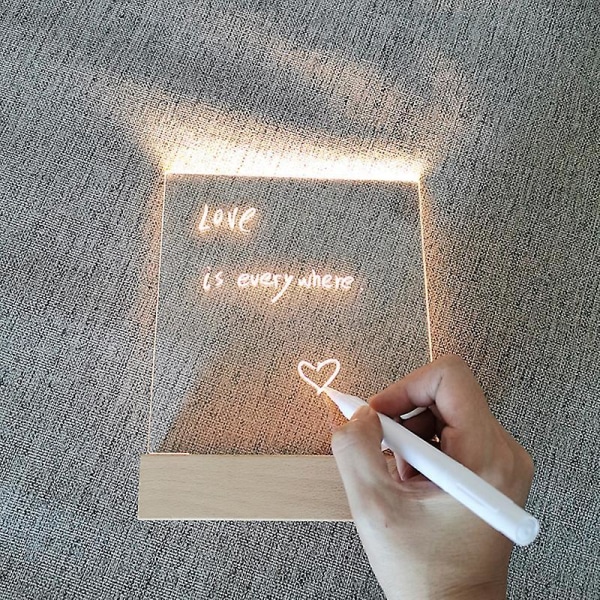 Love
is everywhere